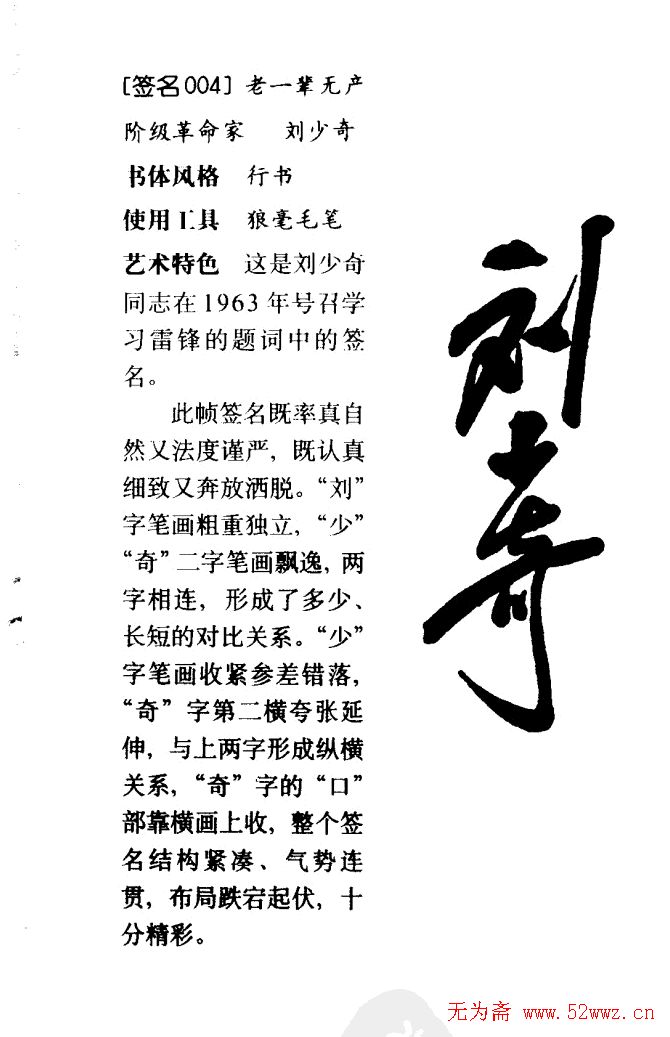 [签名004] 老一辈无产
阶级革命家 刘少奇
书体风格 行书
使用工具 狼毫毛笔
艺术特色 这是刘少奇
同志在1963年号召学
习雷锋的题词中的签
名。
此帧签名既率真自
然又法度谨严，既认真
细致又奔放洒脱。“刘”
字笔画粗重独立，“少”
“奇”二字笔画飘逸，两
字相连，形成了多少、
长短的对比关系。“少”
字笔画收紧参差错落，
“奇”字第二横夸张延
伸，与上两字形成纵横
关系，“奇”字的“口”
部靠横画上收，整个签
名结构紧凑、气势连
贯，布局跌宕起伏，十
分精彩。
刘少奇
无为斋 www.52wwz.cn